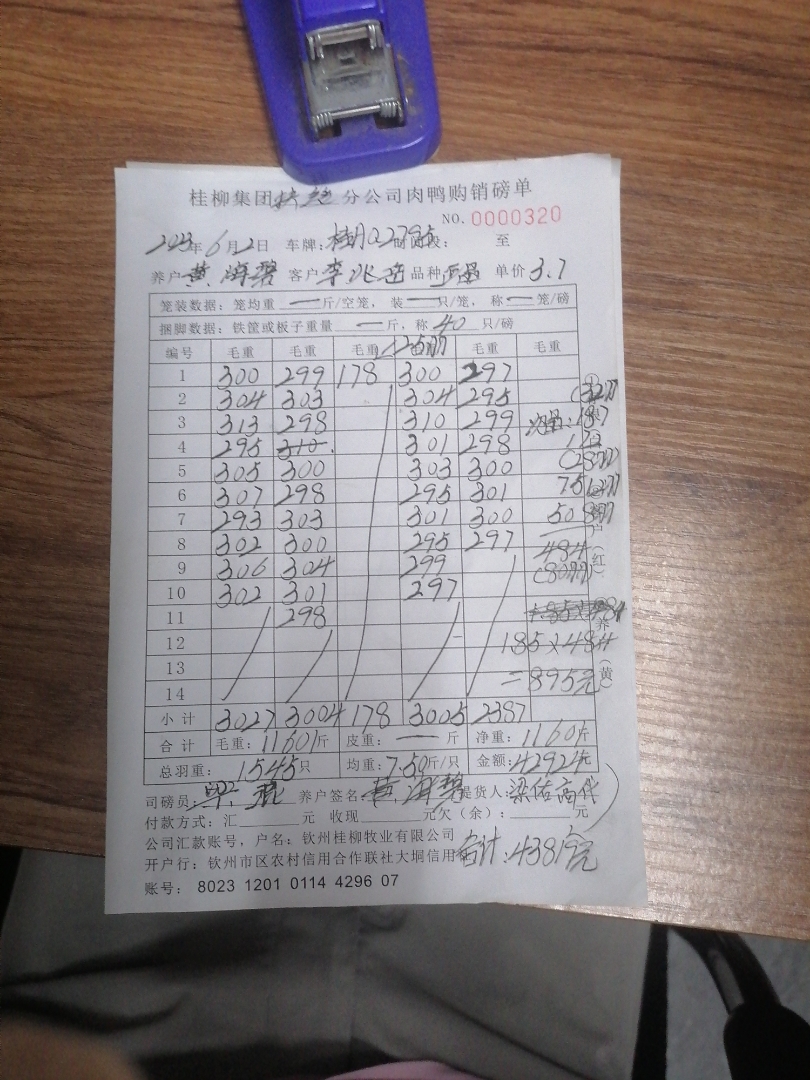 桂柳集团 分公司肉鸭购销磅单
NO. 0000320
2023年6月2日 车牌: 时间段: 至
养户 黄海碧 客户 李兆岳 品种 单价 3.7
笼装数据: 笼均重 — 斤/空笼, 装 — 只/笼, 称 — 笼/磅
捆脚数据: 铁筐或板子重量 — 斤, 称 40 只/磅
编号 毛重 毛重 毛重 毛重 毛重
1 300 299 178 300 297
2 304 303 304 295
3 313 298 310 299
4 295 310 301 298
5 305 300 303 300
6 307 298 295 301 75
7 293 303 301 300 50
8 302 300 295 297 484
9 306 304 299
10 302 301 297
11 298
12 185×484
13
14 =895元
小计 3027 3004 178 3005 2387
合计 毛重: 11601斤 皮重: — 斤 净重: 11601斤
总羽重: 1545只 均重: 7.50斤/只 金额: 42924元
司磅员: 养户签名: 黄海碧 提货人: 梁佑高代
付款方式: 汇 元 收现 元欠(余): 元
公司汇款账号, 户名: 钦州桂柳牧业有限公司
开户行: 钦州市区农村信用合作联社大垌信用 合计: 43819元
账号: 8023 1201 0114 4296 07
(红)
养
(黄)